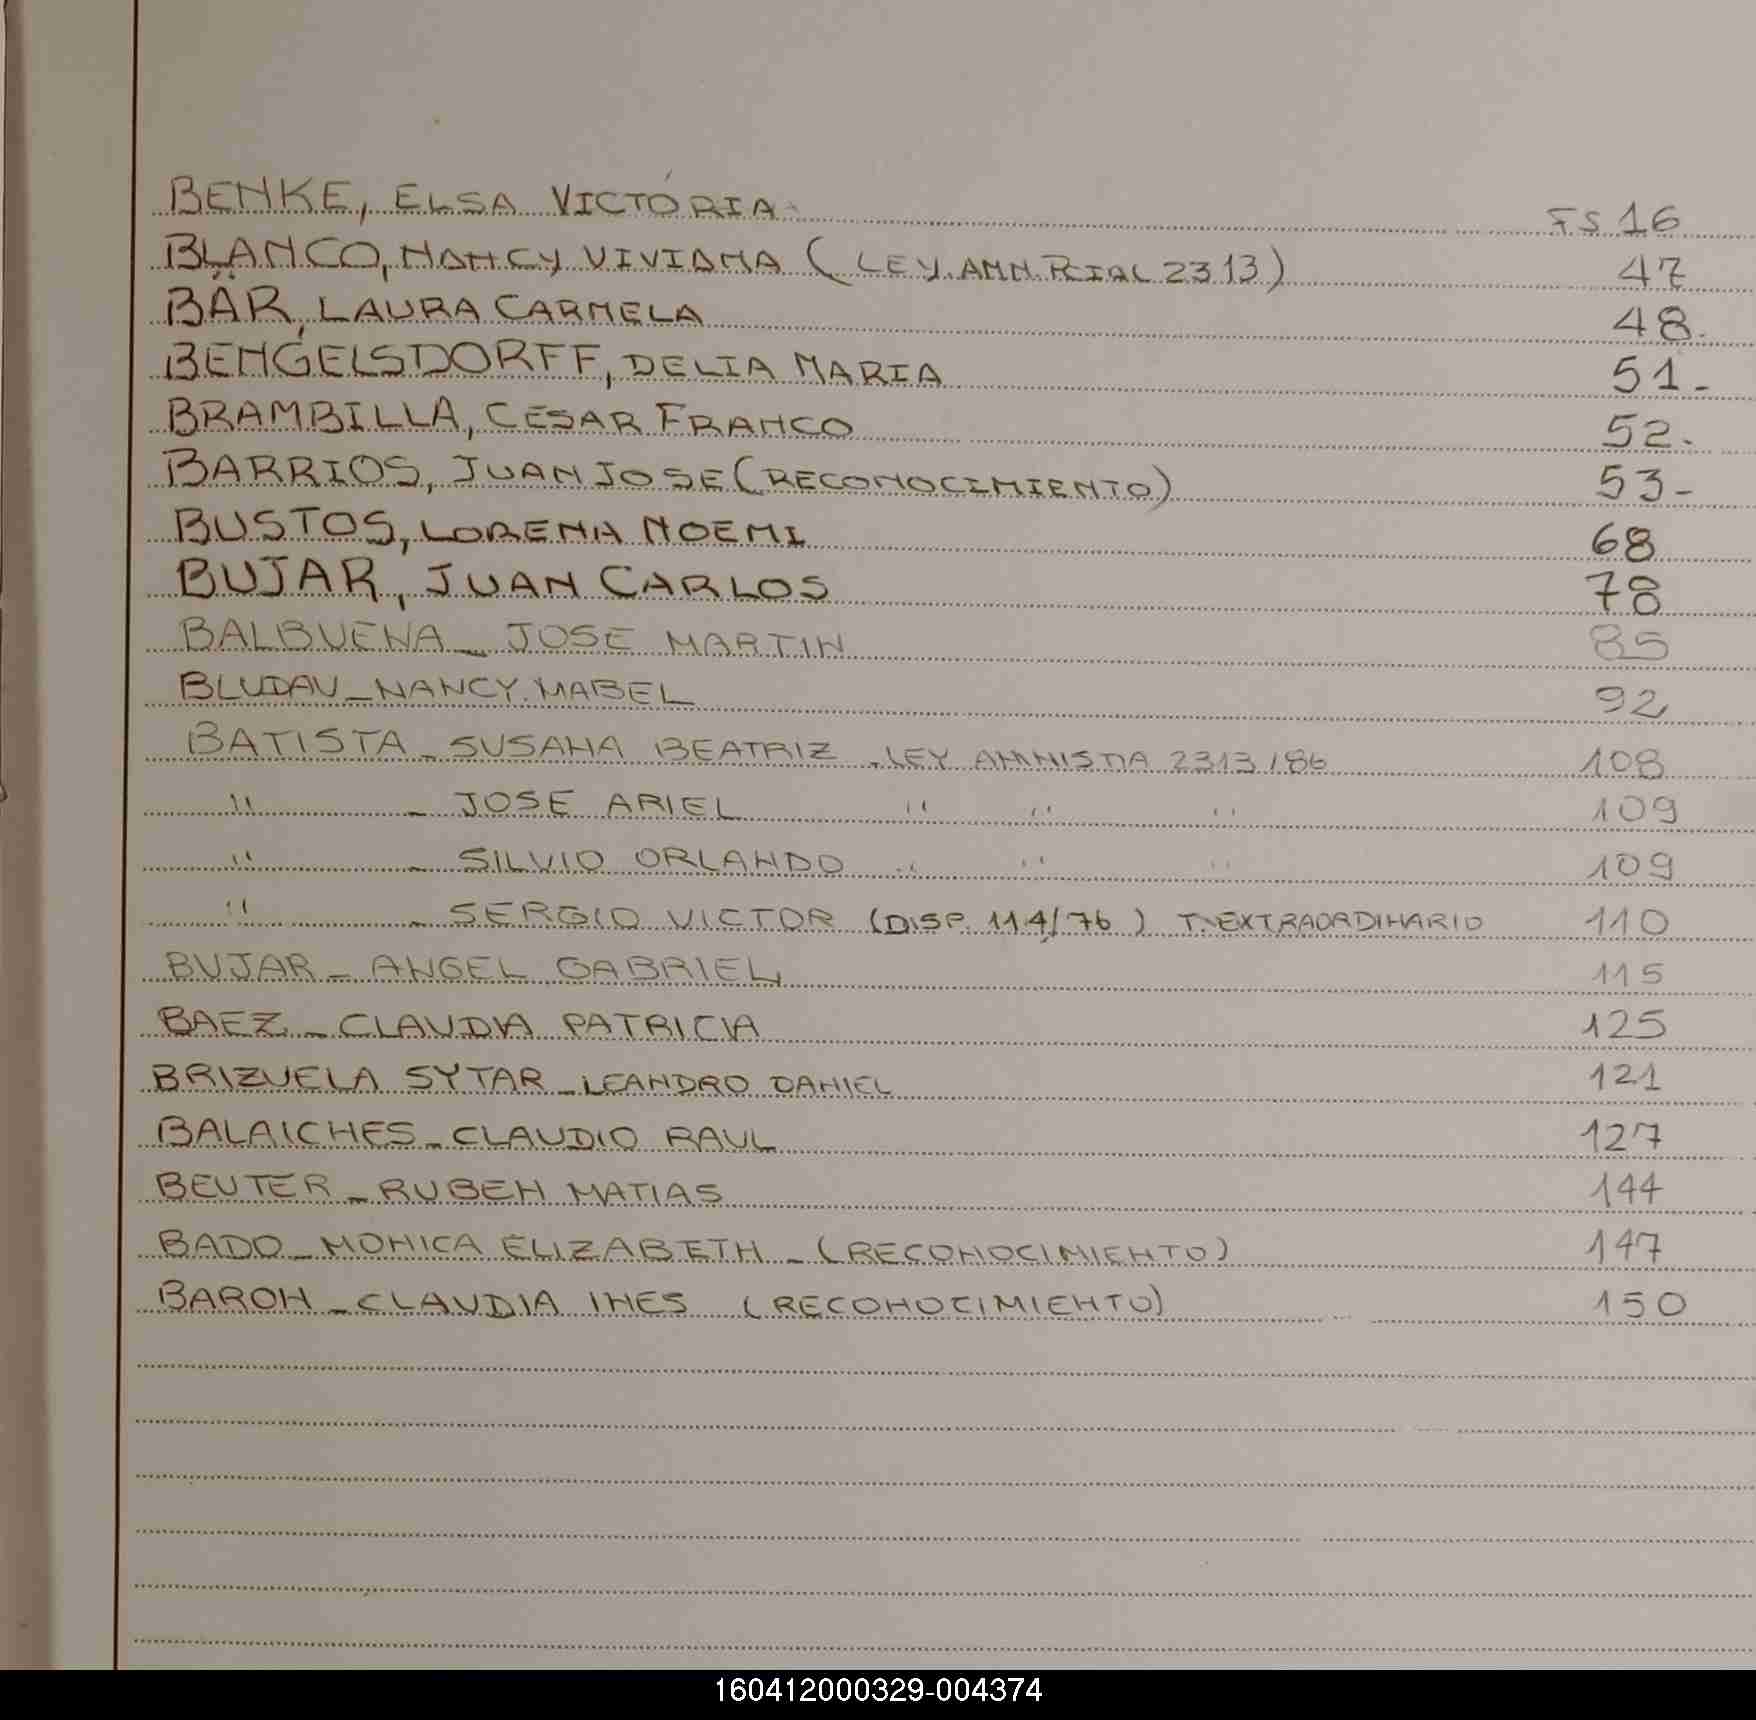 BENKE, ELSA VICTORIA FS 16
BLANCO, NANCY VIVIANA (LEY AMN. PCIAL 2313) 47
BÄR, LAURA CARMELA 48.
BENGELSDORFF, DELIA MARIA 51-
BRAMBILLA, CESAR FRANCO 52.
BARRIOS, JUAN JOSE (RECONOCIMIENTO) 53-
BUSTOS, LORENA NOEMI 68
BUJAR, JUAN CARLOS 78
BALBUENA - JOSE MARTIN 85
BLUDAU - NANCY MABEL 92
BATISTA - SUSANA BEATRIZ - LEY AMNISTIA 2313/86 108
" - JOSE ARIEL " " " 109
" - SILVIO ORLANDO " " " 109
" - SERGIO VICTOR (DISP. 114/76) T. EXTRAORDINARIO 110
BUJAR - ANGEL GABRIEL 115
BAEZ - CLAUDIA PATRICIA 125
BRIZUELA SYTAR - LEANDRO DANIEL 121
BALAICHES - CLAUDIO RAUL 127
BEUTER - RUBEN MATIAS 144
BADO - MONICA ELIZABETH - (RECONOCIMIENTO) 147
BARON - CLAUDIA INES (RECONOCIMIENTO) 150
160412000329-004374